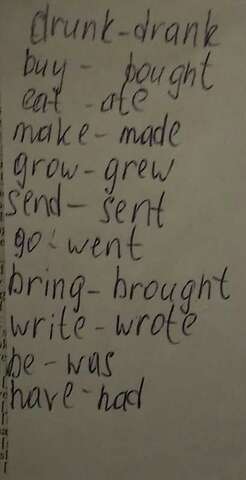 drunk-drank
buy - bought
eat - ate
make - made
grow - grew
send - sent
go - went
bring - brought
write - wrote
be - was
have - had